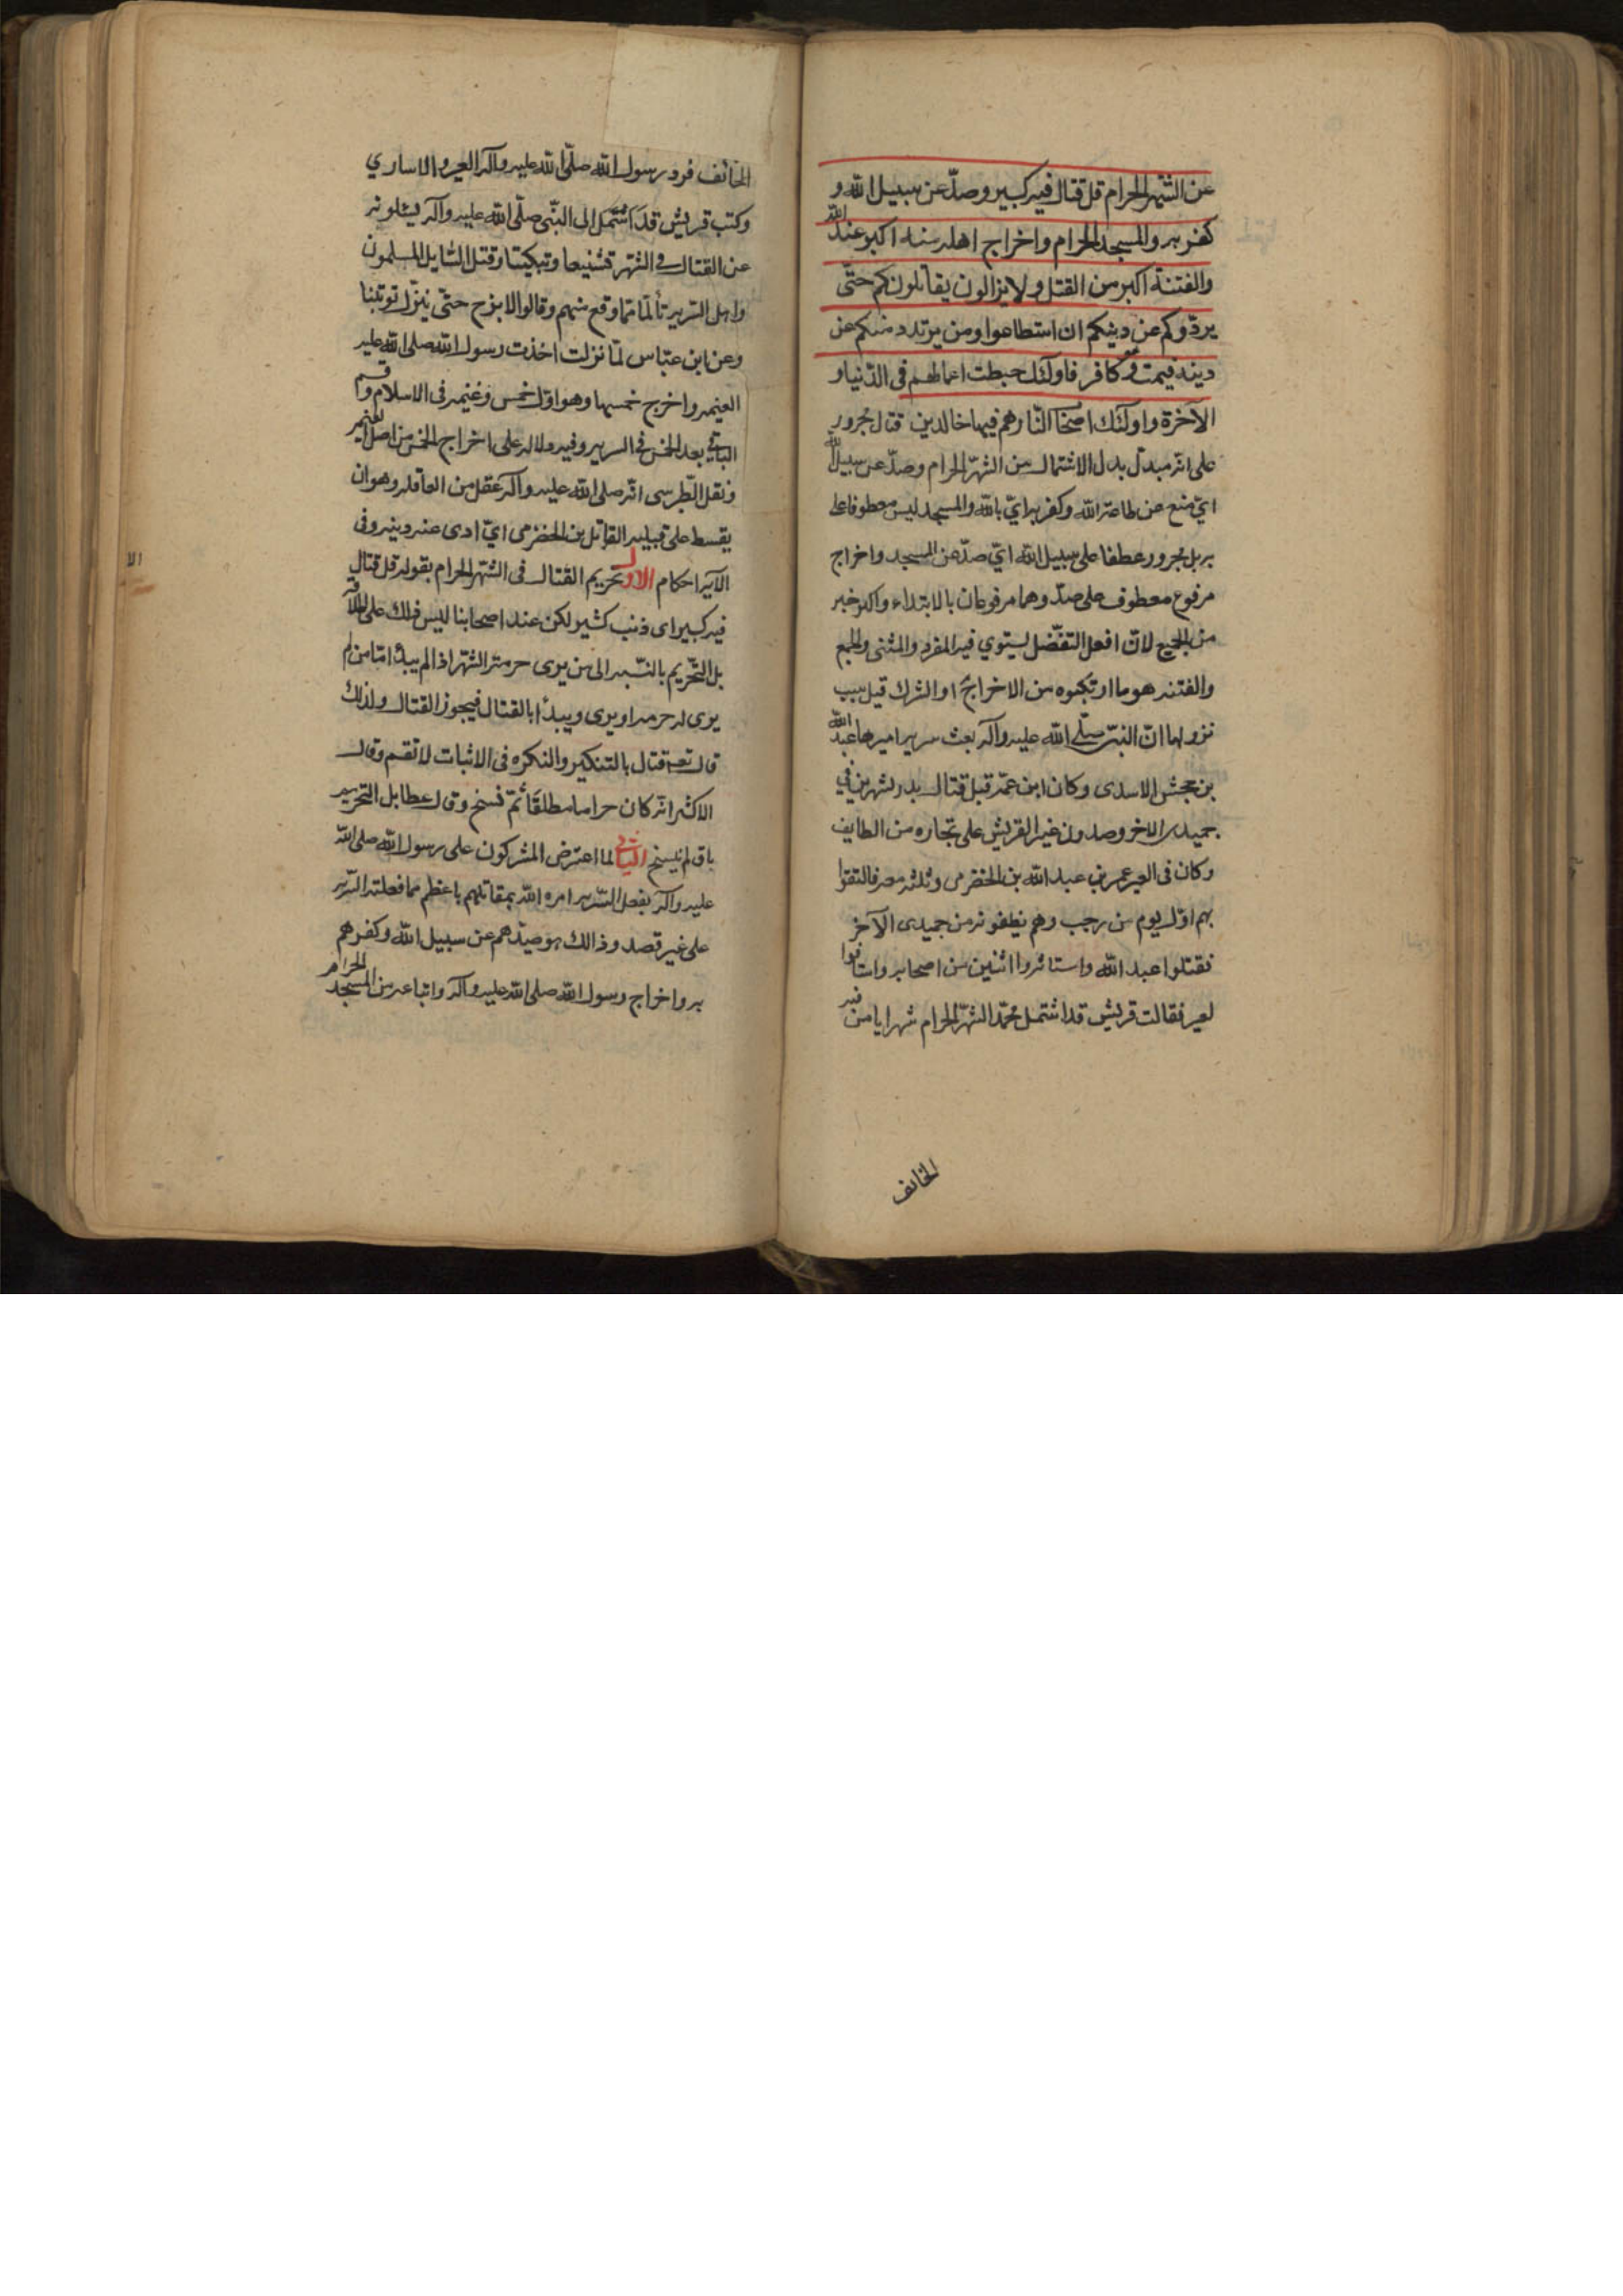 عن الشهر الحرام قل قتال فيه كبير وصدّ عن سبيل الله و
كفر به والمسجد الحرام واخراج اهله منه اكبر عند الله
والفتنة اكبر من القتل ولا يزالون يقاتلونكم حتّى
يردّوكم عن دينكم ان استطاعوا ومن يرتدد منكم عن
دينه فيمت وهو كافر فاولئك حبطت اعمالهم في الدّنيا و
الآخرة واولئك اصحاب النّار هم فيها خالدين قتال مجرور
على انّه مبدل بدل الاشتمال من الشهر الحرام وصدّ عن سبيل الله
ايّ منع عن طاعة الله وكفر به ايّ بالله والمسجد ليس معطوفا على
به بل مجرور عطفا على سبيل الله ايّ صدّ عن المسجد واخراج
مرفوع معطوف على صدّ وهما مرفوعان بالابتداء واكبر خبر
من الجميع لانّ افعل التفضّل يستوي فيه المفرد والمثنى والجمع
والفتنه هو ما ارتكبوه من الاخراج او الشرك قيل سبب
نزولها انّ النبيّ صلّى الله عليه وآله بعث سريه اميرها عبد الله
بن جحش الاسدى وكان ابن عمّته قبل قتال بدر بشهرين في
جميدى الاخر وصدون غير القريش على تجاره من الطايف
وكان فى العير عمر بن عبد الله بن الخضرمى وثلثه معه فالتقوا
بهم اوّل يوم من رجب وهم يظنونه من جميدى الآخر
فقتلوا عبد الله واستاسروا اثنين من اصحابه واستاقوا
لعير فقالت قريش قد اشتمل محمّد الشهر الحرام شهرا يامن فيه
الخائف
الخائف فرد رسول الله صلّى الله عليه وآله العير والاساري
وكتب قريش قد اشتمل الى النبّى صلّى الله عليه وآله يسئلونه
عن القتال في الشهر تشنيعا وتبكيتا وقتل السّايل المسلمون
واهل السّريه تألّما ممّا وقع منهم وقالوا لا نبرح حتّى ينزّل توبتنا
وعن ابن عبّاس لمّا نزلت اخذت رسول الله صلى الله عليه
الغنيمه واخرج خمسها وهو اوّل خمس وغنيمه فى الاسلام وقسم
الباقي بعد الخمس في السريه وفيه دلاله على اخراج الخمس من اصل الغنيمه
ونقل الطّبرسى انّه صلى الله عليه وآله عقل من العاقله وهو ان
يقسط على قبيله القاتل بن الخضرمى ايّ ادى عنه دينه وفى
الآيه احكام الاول تحريم القتال فى الشهر الحرام بقوله قل قتال
فيه كبير اى ذنب كثير لكن عند اصحابنا ليس ذلك على اطلاقه
بل التّحريم بالنّسبه الى من يرى حرمة الشهر اذا لم يبدأ امّا من لم
يرى له حرمه او يرى ويبدأ بالقتال فيجوز القتال ولذلك
قال تعه قتال بالتنكير والنكره فى الاثبات لا تعم وقال
الاكثر انّه كان حراما مطلقًا ثمّ نسخ وقال عطا بل التحريم
باق لم ينسخ الثاني لما اعترض المشركون على رسول الله صلى الله
عليه وآله بفعل السّريه امره الله بمقاتلهم باعظم مما فعلته السّريه
على غير قصد وذالك هو صدّهم عن سبيل الله وكفرهم
به واخراج رسول الله صلى الله عليه وآله واتباعه من المسجد الحرام
الا